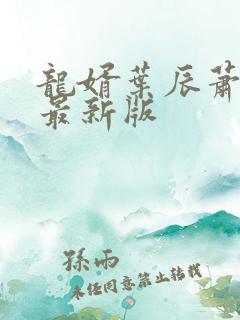 龍婿葉辰蕭
最新版
孫雨
未经同意禁止转载